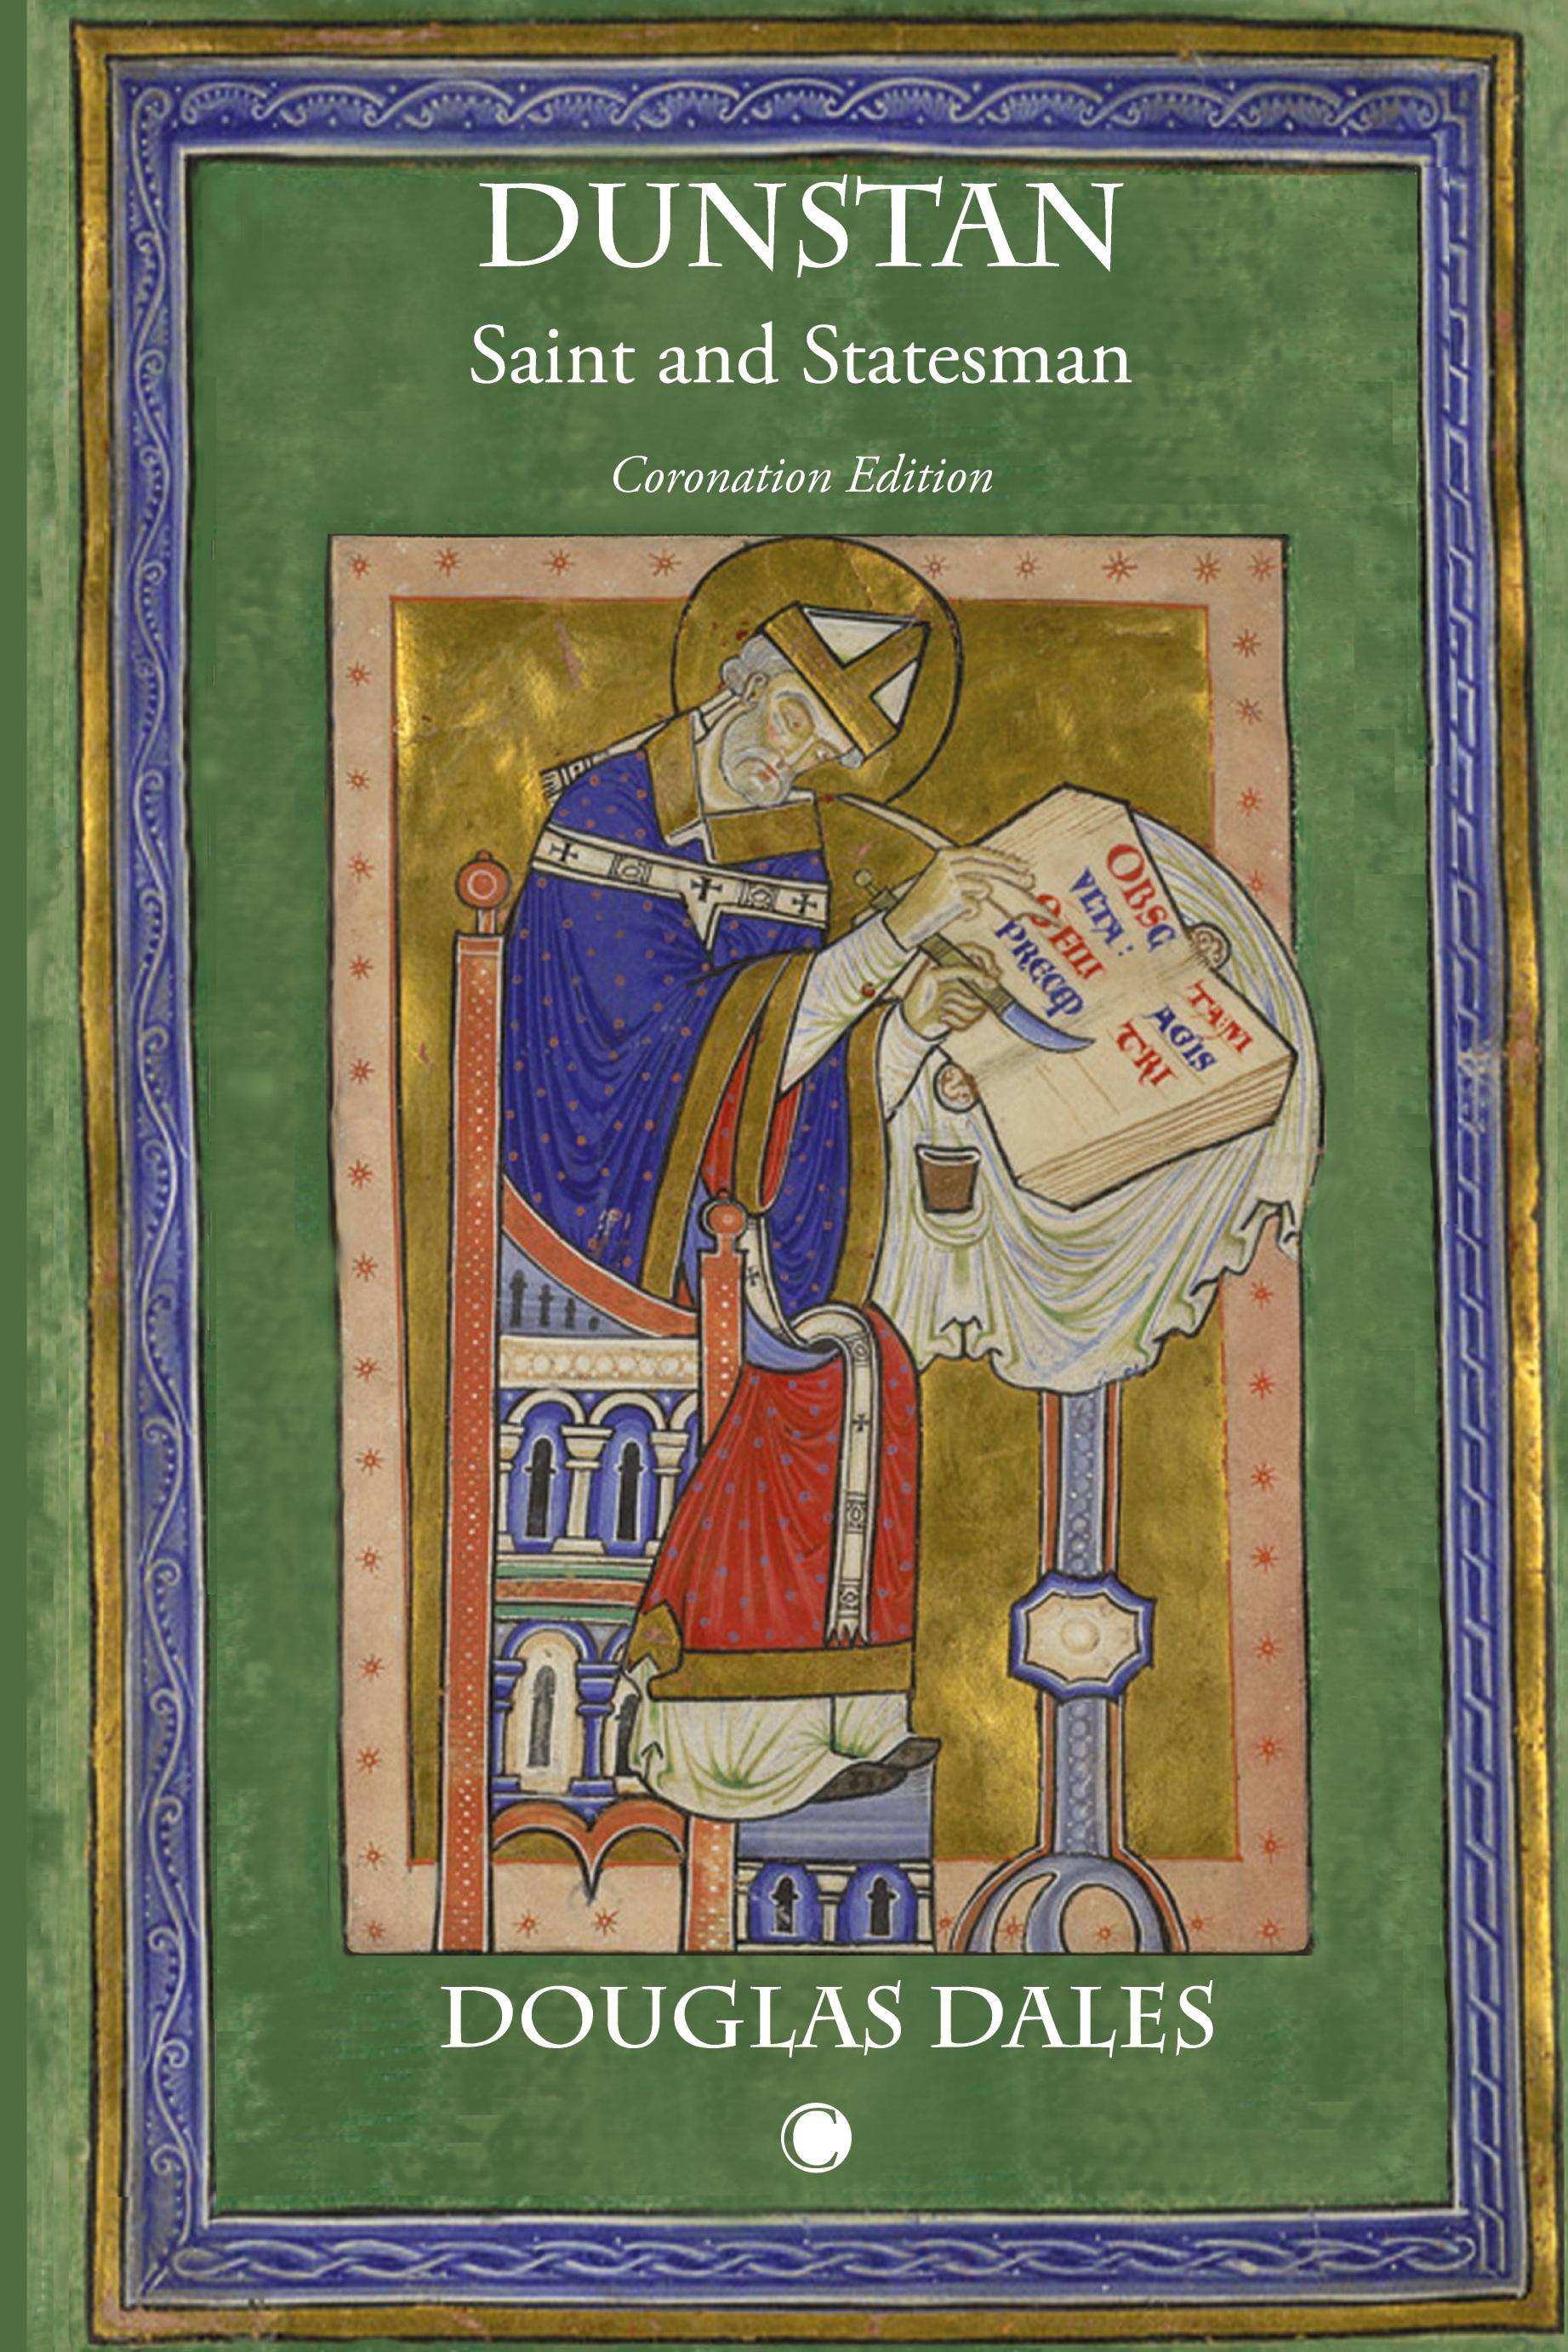 DUNSTAN
Saint and Statesman
Coronation Edition
OBSC
VLTA:
O FILI
PRECEP
TAM
AGIS
TRI
DOUGLAS DALES
C